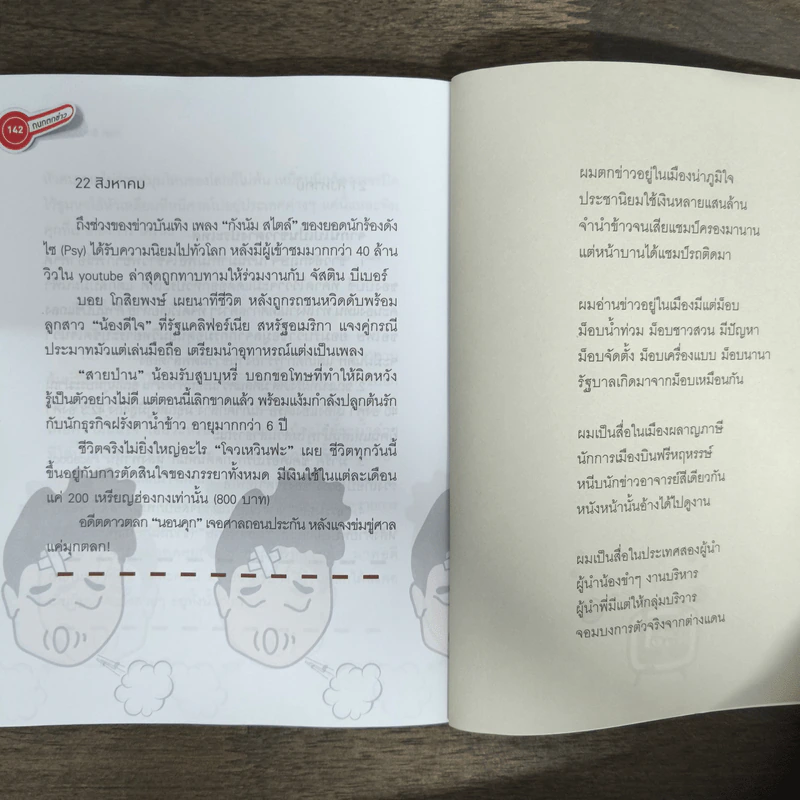 142
คนตกข่าว
22 สิงหาคม
ถึงช่วงของข่าวบันเทิง เพลง “กังนัม สไตล์” ของยอดนักร้องดัง
ไซ (Psy) ได้รับความนิยมไปทั่วโลก หลังมีผู้เข้าชมมากกว่า 40 ล้าน
วิวใน youtube ล่าสุดถูกทาบทามให้ร่วมงานกับ จัสติน บีเบอร์
บอย โกสิยพงษ์ เผยนาทีชีวิต หลังถูกรถชนหวิดดับพร้อม
ลูกสาว “น้องดีใจ” ที่รัฐแคลิฟอร์เนีย สหรัฐอเมริกา แจงคู่กรณี
ประมาทมัวแต่เล่นมือถือ เตรียมนำอุทาหรณ์แต่งเป็นเพลง
“สายป่าน” น้อมรับสูบบุหรี่ บอกขอโทษที่ทำให้ผิดหวัง
รู้เป็นตัวอย่างไม่ดี แต่ตอนนี้เลิกขาดแล้ว พร้อมแง้มกำลังปลูกต้นรัก
กับนักธุรกิจฝรั่งตาน้ำข้าว อายุมากกว่า 6 ปี
ชีวิตจริงไม่ยิ่งใหญ่อะไร “โจวเหวินฟะ” เผย ชีวิตทุกวันนี้
ขึ้นอยู่กับการตัดสินใจของภรรยาทั้งหมด มีเงินใช้ในแต่ละเดือน
แค่ 200 เหรียญฮ่องกงเท่านั้น (800 บาท)
อดีตดาวตลก “นอนคุก” เจอศาลถอนประกัน หลังแจงข่มขู่ศาล
แค่มุกตลก!
ผมตกข่าวอยู่ในเมืองน่าภูมิใจ
ประชานิยมใช้เงินหลายแสนล้าน
จำนำข้าวจนเสียแชมป์ครองมานาน
แต่หน้าบานได้แชมป์รถติดมา
ผมอ่านข่าวอยู่ในเมืองมีแต่ม็อบ
ม็อบน้ำท่วม ม็อบชาวสวน มีปัญหา
ม็อบจัดตั้ง ม็อบเครื่องแบบ ม็อบนานา
รัฐบาลเกิดมาจากม็อบเหมือนกัน
ผมเป็นสื่อในเมืองผลาญภาษี
นักการเมืองบินฟรีหฤหรรษ์
หนีบนักข่าวอาจารย์สีเดียวกัน
หนังหน้านั้นอ้างได้ไปดูงาน
ผมเป็นสื่อในประเทศสองผู้นำ
ผู้นำน้องขำๆ งานบริหาร
ผู้นำพี่มีแต่ให้กลุ่มบริวาร
จอมบงการตัวจริงจากต่างแดน